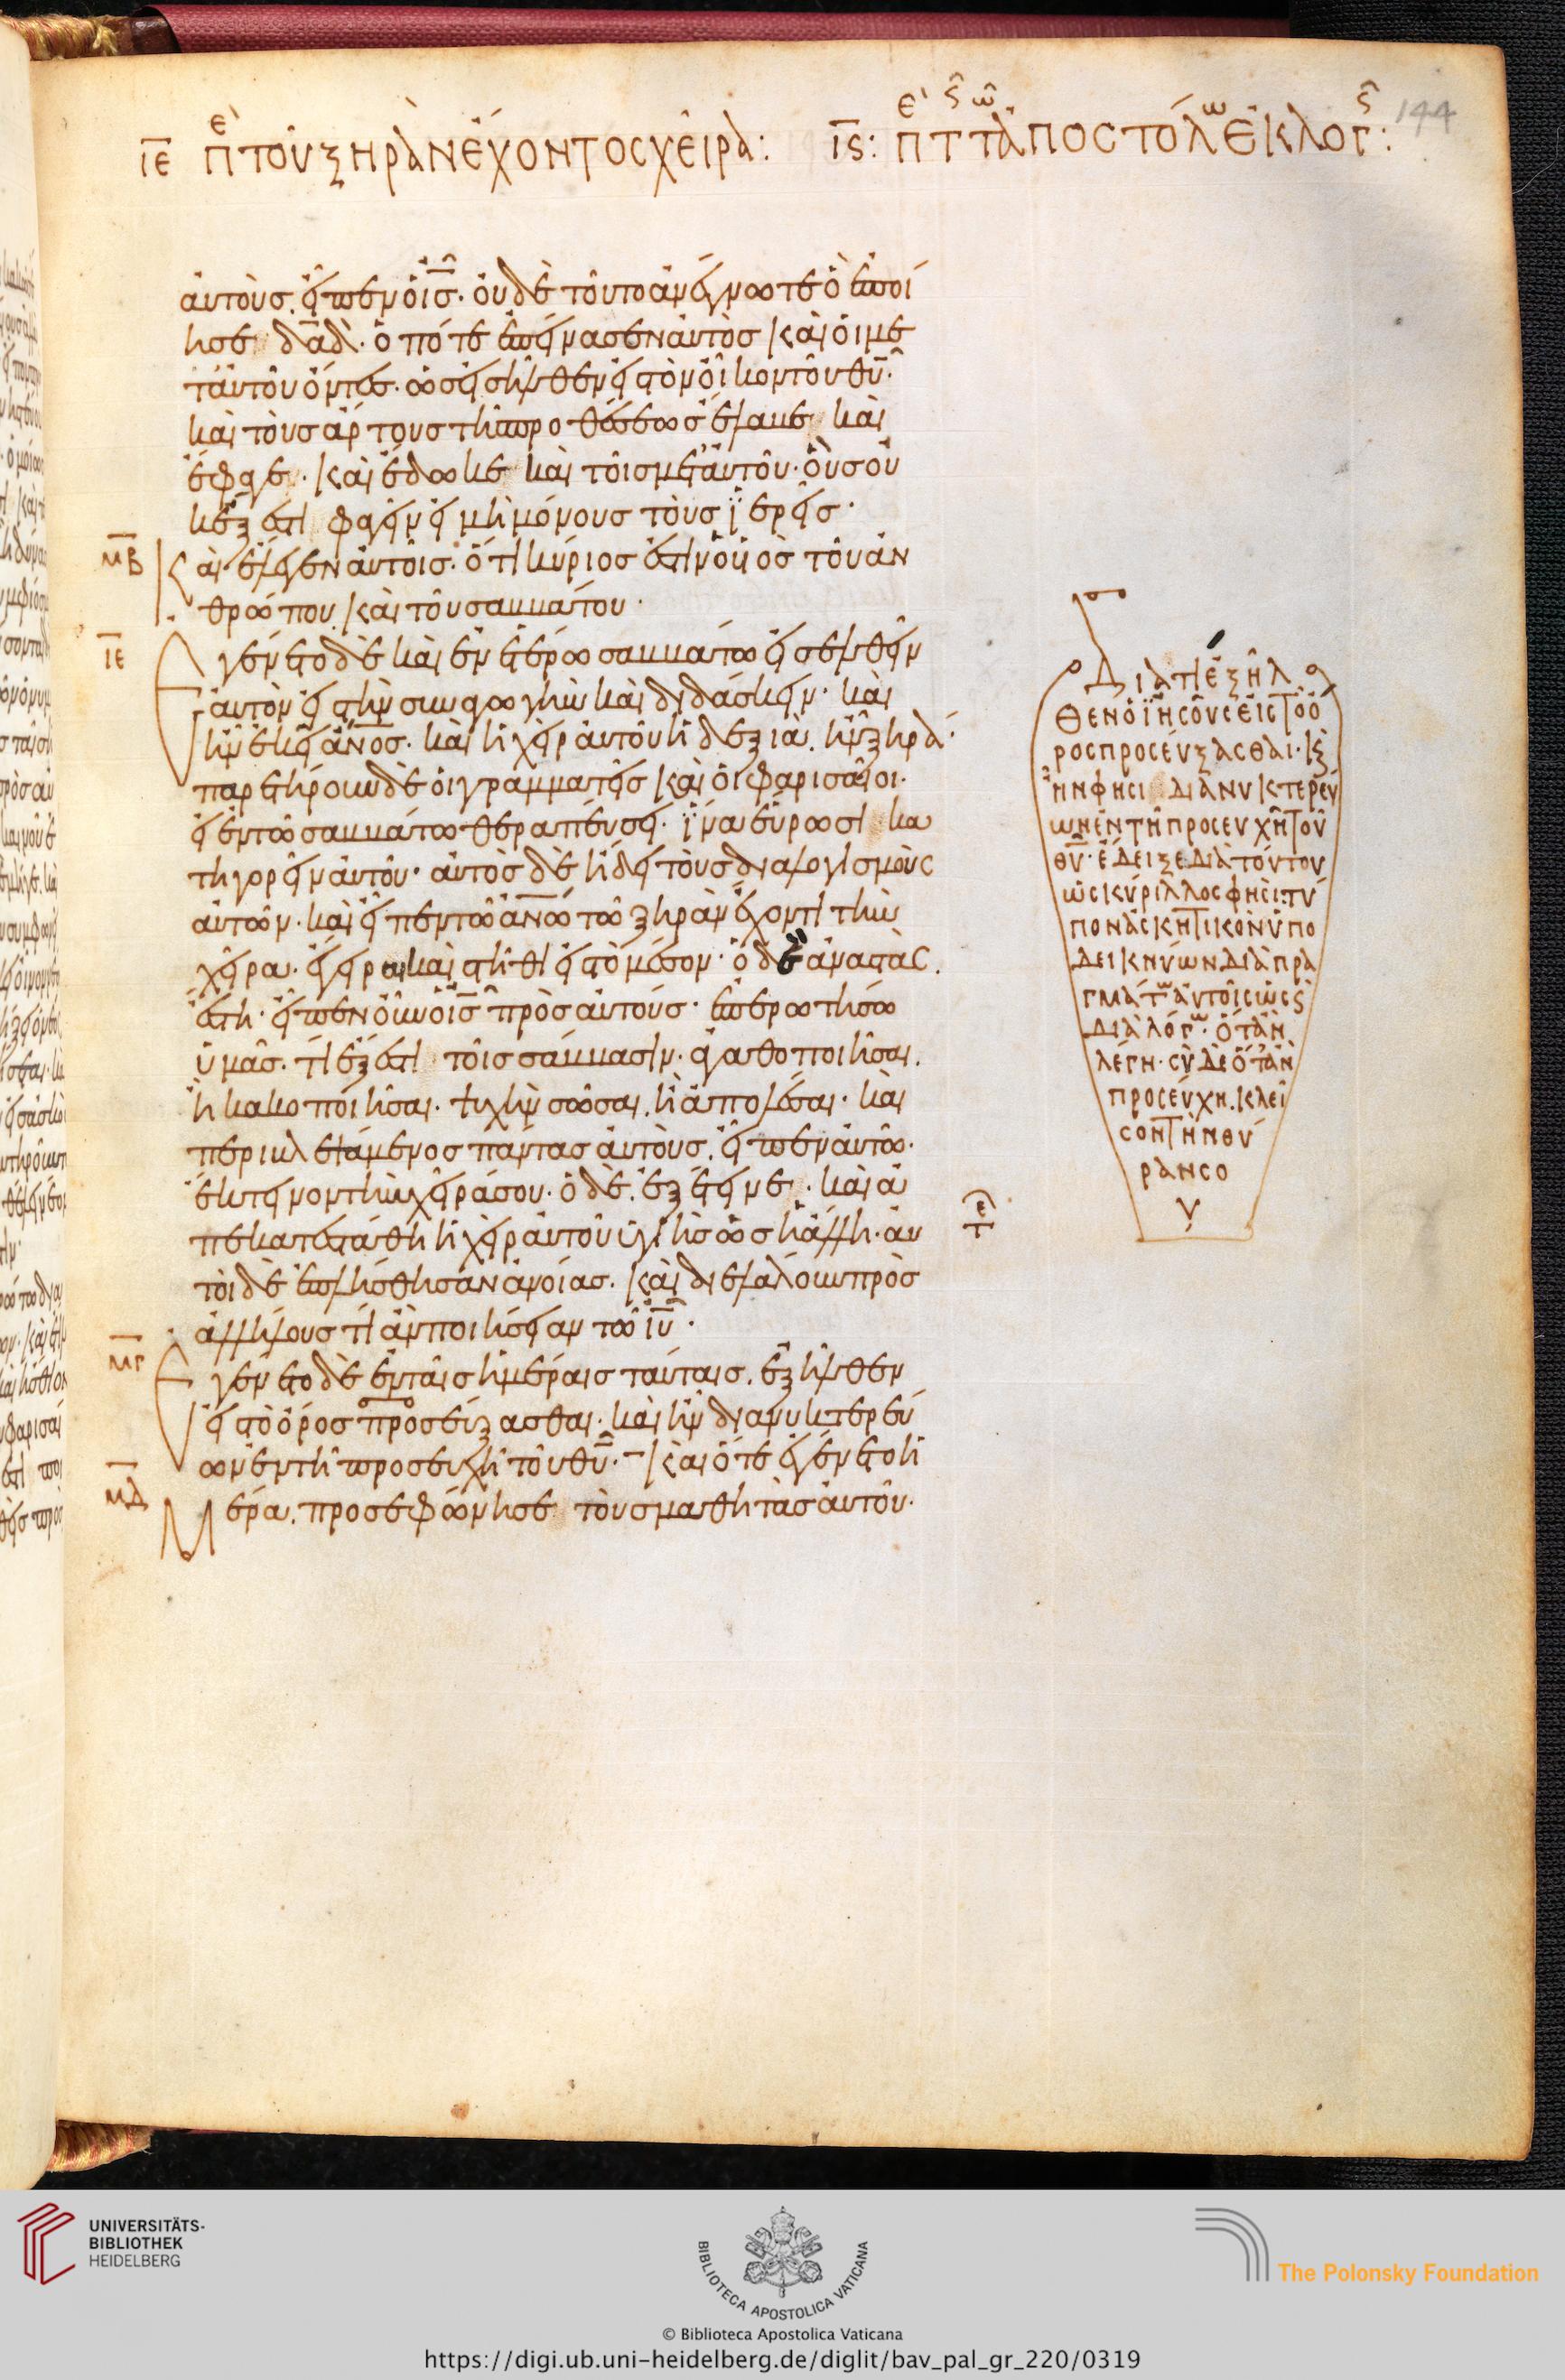 144
ιε πε τοῦ ξηρὰν ἔχοντος χεῖρα: ις: πε τς τῶ ἀποστόλω ἐκλογς:
αὐτοὺς. εἶπεν ὁ ις. οὐδὲ τοῦτο ἀνέγνωτε ὃ ἐποί
ησε δαδ. ὁπότε ἐπείνασεν αὐτὸς καὶ οἱ με
τ᾽ αὐτοῦ ὄντες. ὡς εἰσῆλθεν εἰς τὸν οἶκον τοῦ θυ.
καὶ τοὺς ἄρτους τῆς προθέσεως ἔλαβε καὶ
ἔφαγε. καὶ ἔδωκε καὶ τοῖς μετ᾽ αὐτοῦ. οὓς οὐ
κ ἔξεστι φαγεῖν εἰ μὴ μόνους τοὺς ἱερεῖς.
μβ Καὶ ἔλεγεν αὐτοῖς. ὅτι κύριός ἐστιν ὁ υἱὸς τοῦ ἀν
θρώπου καὶ τοῦ σαββάτου.
ιε Ἐγένετο δὲ καὶ ἐν ἑτέρω σαββάτω εἰσελθεῖν
αὐτὸν εἰς τὴν συναγωγὴν καὶ διδάσκειν. καὶ
ἦν ἐκεῖ ανος. καὶ ἡ χεὶρ αὐτοῦ ἡ δεξιὰ. ἦν ξηρά.
παρετήρουν δὲ οἱ γραμματεῖς καὶ οἱ φαρισαῖοι.
εἰ ἐν τῶ σαββάτω θεραπεύσει. ἵνα εὕρωσι κα
τηγορεῖν αὐτοῦ. αὐτὸς δὲ ἤδει τοὺς διαλογισμοὺς
αὐτῶν. καὶ εἶπεν τῶ ανω τῶ ξηρὰν ἔχοντι τὴν
χεῖρα. ἔγειραι καὶ στῆθι εἰς τὸ μέσον. ὁ δὲ ἀναστὰς.
ἔστη. εἶπεν οὖν ὁ ις πρὸς αὐτούς. ἐπερωτήσω
ὑμᾶς. τί ἔξεστι τοῖς σάββασιν. ἀγαθοποιῆσαι.
ἢ κακοποιῆσαι. ψυχὴν σῶσαι. ἢ ἀπολέσαι. καὶ
περιβλεψάμενος πάντας αὐτοὺς. εἶπεν αὐτῶ.
ἔκτεινον τὴν χεῖρά σου. ὁ δὲ. ἐξέτεινε. καὶ ἀ
πεκατεστάθη ἡ χεὶρ αὐτοῦ ὑγιὴς ὡς ἡ ἄλλη. αὐ
τοὶ δὲ ἐπλήσθησαν ἀνοίας. καὶ διελάλουν πρὸς
ἀλλήλους τί ἂν ποιήσειαν τῶ ιυ.
μγ Ἐγένετο δὲ ἐν ταῖς ἡμέραις ταύταις. ἐξῆλθεν
εἰς τὸ ὄρος προσεύξασθαι. καὶ ἦν διανυκτερεύ
ων ἐν τῆ προσευχῆ τοῦ θυ. καὶ ὅτε ἐγένετο ἡ
μδ μέρα. προσεφώνησε τοὺς μαθητὰς αὐτοῦ.
τε
Διατὶ ἐξῆλ
θεν ὁ ἰησοῦς εἰς τὸ ὄ
ρος προσεύξασθαι. κς
ἦν φησι διανυκτερεύ
ων ἐν τῆ προσευχῆ τοῦ
θυ. ἔδειξε διὰ τούτου
ὡς κύριλλος φησὶ. τύ
πον ἀσκητικὸν ὑπο
δεικνύων διὰ πρα
γμάτω αὐτοῖς ὡς
διὰ λόγω. ὅταν
λέγη. σὺ δὲ ὅταν
προσεύχη. κλεῖ
σον τὴν θύ
ραν σο
υ
UNIVERSITÄTS-
BIBLIOTHEK
HEIDELBERG
BIBLIOTECA APOSTOLICA VATICANA
The Polonsky Foundation
© Biblioteca Apostolica Vaticana
https://digi.ub.uni-heidelberg.de/diglit/bav_pal_gr_220/0319